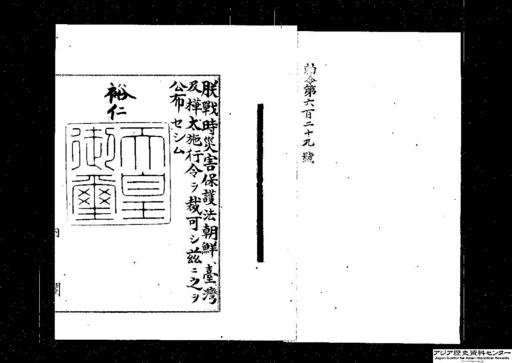 勅令第六百二十九號
朕戰時災害保護法朝鮮臺灣
及樺太施行令ヲ裁可シ茲ニ之ヲ
公布セシム
裕仁
天皇
御璽
内閣
アジア歴史資料センター
Japan Center for Asian Historical Records